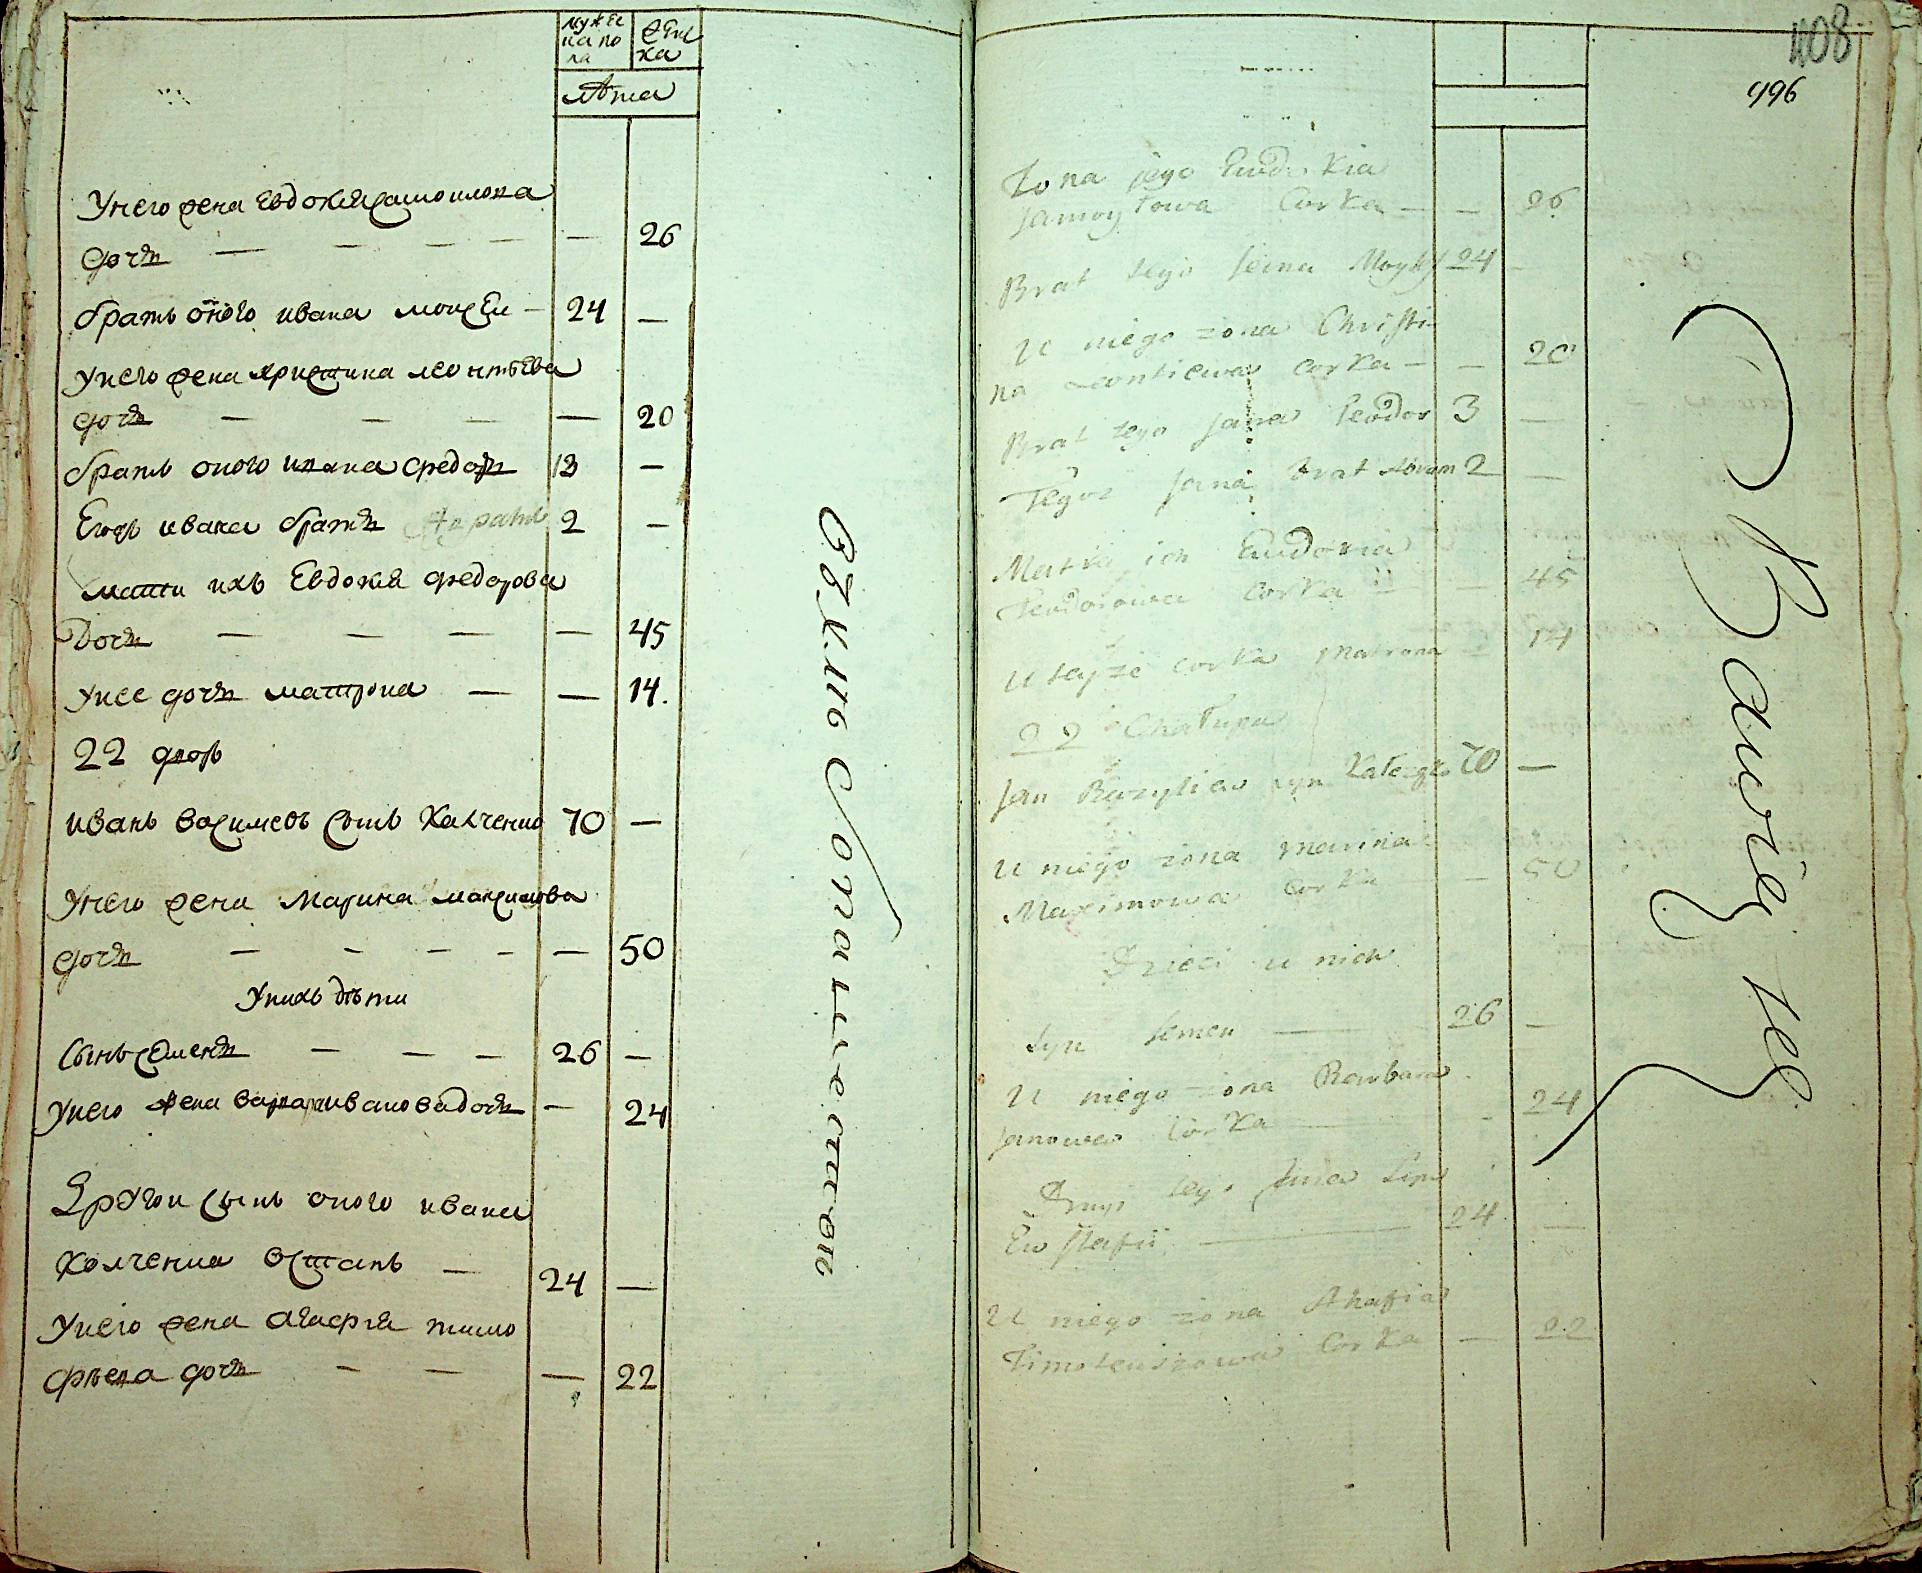 мужеска пола
женска
Лѣта
У него жена Евдокия Самоилова
дочь — — — — — 26
братъ оного ивана моисеи — 24 —
у него жена христина леонтьева
дочь — — — — 20
братъ оного ивана Федоръ 13 —
Егожъ ивана братъ 2 —
мати ихъ Евдокия Федорова
Дочь — — — — 45
у нее дочь матрона — — 14.
22 дворъ
иванъ васильевъ сынъ Халченко 70 —
У него жена Марина максимова
дочь — — — — — 50
У нихъ дѣти
Сынъ семенъ — — — 26 —
У него жена варвара иванова дочь — 24
Другои сынъ оного ивана
Халченка Остапъ — 24 —
У него жена Агафия тимо
фѣева дочь — — — 22
408
496
Żona jego Eudokia
Samoyłowa Corka — — 26
Brat tego Jana Moysey 24 —
U niego żona Christi
na Leontiewa corka — — 20
Brat tego Jana Teodor 3 —
Tegoż Jana brat Abram 2 —
Matka ich Eudokia
Teodorowa corka — — 45
U teyże corka Matrona — 14
22 Chałupa
Jan Bazyliew syn 70 —
U niego żona Marina
Maximowa corka — — 50
Dzieci u nich
Syn Semen — 26 —
U niego żona Barbara
Janowa Corka — — 24
Drugi tego Jana Syn
Eustafii — 24 —
U niego żona Ahafia
Timoteuszowa Corka — 22